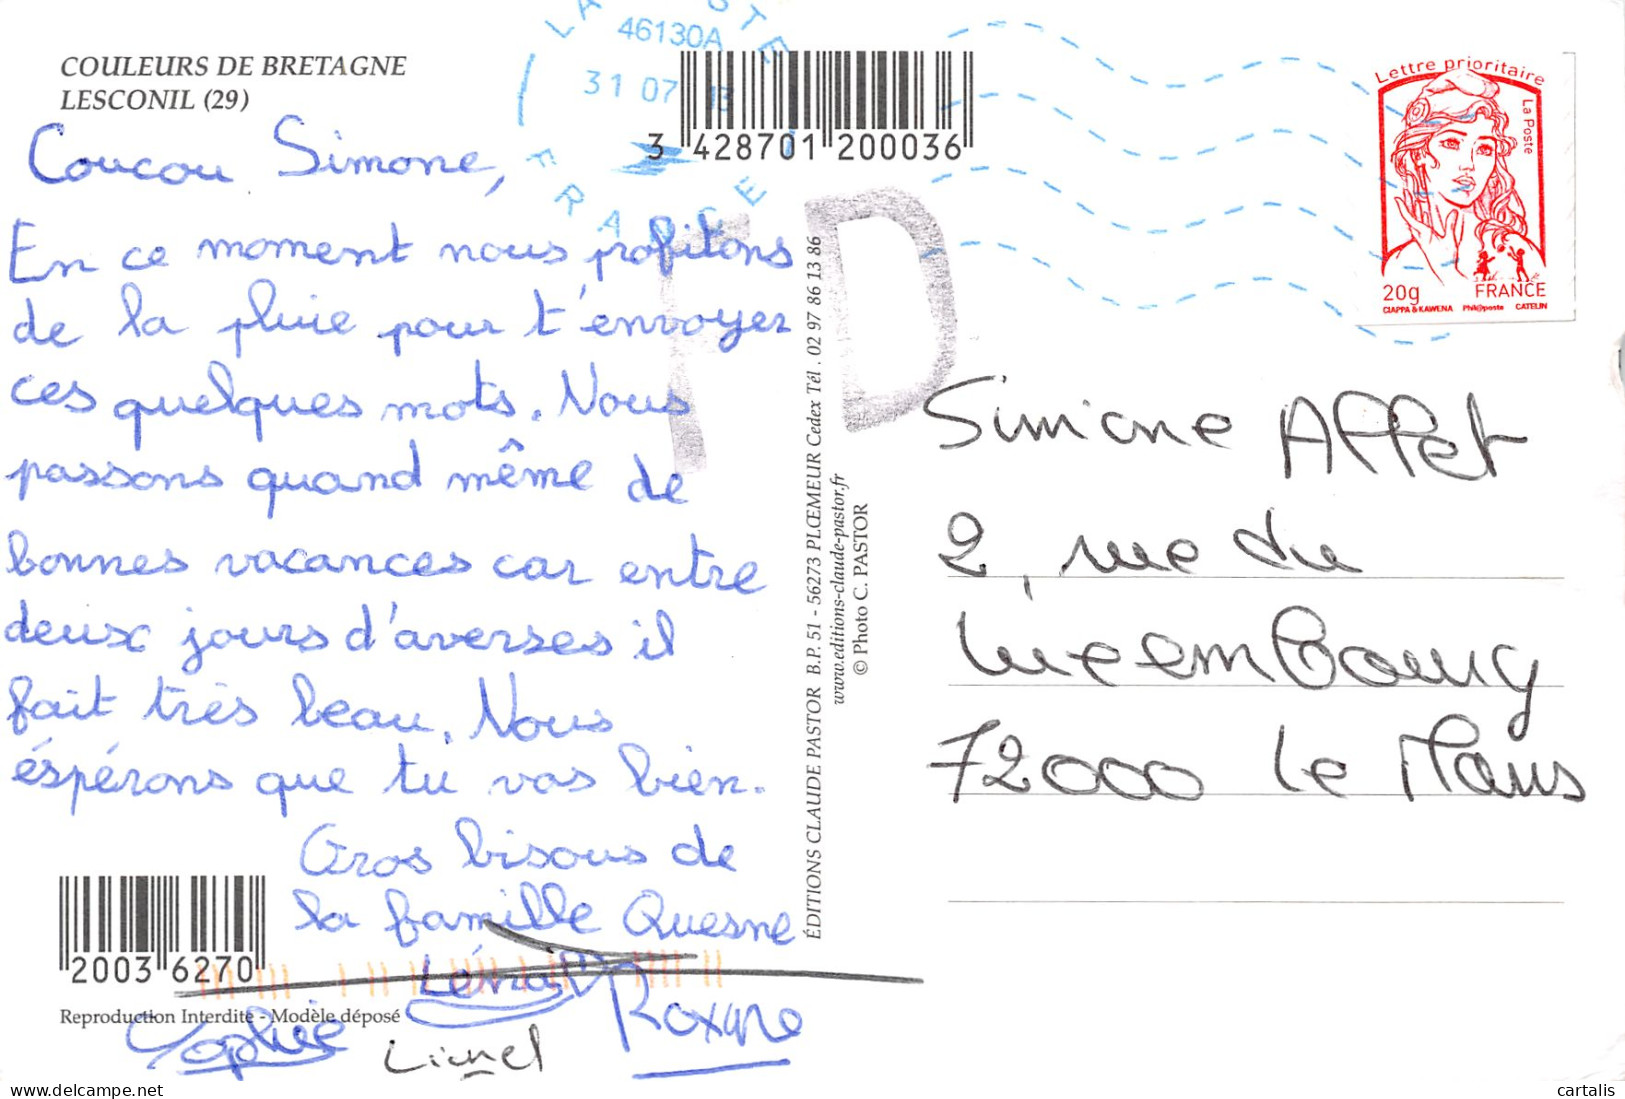 COULEURS DE BRETAGNE
LESCONIL (29)
Coucou Simone,
En ce moment nous profitons
de la pluie pour t'envoyer
ces quelques mots. Nous
passons quand même de
bonnes vacances car entre
deux jours d'averses il
fait très beau. Nous
éspérons que tu vas bien.
Gros bisous de
la famille Quesne
Léna Roxane
Sophie
Lionel
2003 6270
Reproduction Interdite - Modèle déposé
LA POSTE
46130A
31 07
FRANCE
3 428701 200036
D
ÉDITIONS CLAUDE PASTOR B.P. 51 - 56273 PLŒMEUR Cedex Tél . 02 97 86 13 86
www.editions-claude-pastor.fr
© Photo C. PASTOR
Lettre prioritaire
La Poste
20g FRANCE
CIAPPA & KAWENA Phil@poste CATELIN
Simone Affet
2, rue du
Luxembourg
72000 Le Mans
cartalis
www.delcampe.net